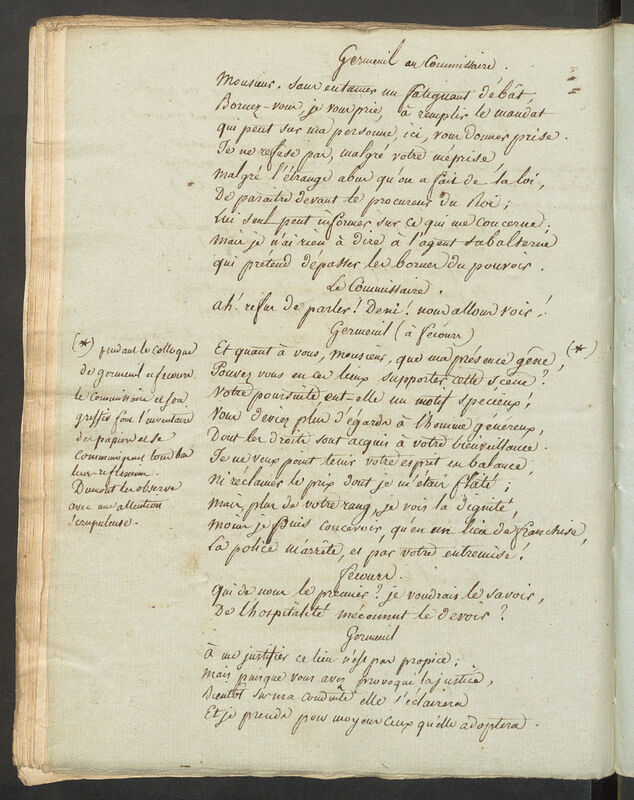 Germeuil au Commissaire.
Monsieur, sans entamer un fatiguant débat,
Bornez-vous, je vous prie, à remplir le mandat
qui peut sur ma personne, ici, vous donner prise.
Je ne refuse pas, malgré votre méprise,
malgré l'étrange abus qu'on a fait de la loi,
De paraitre devant le procureur du Roi;
Lui seul peut informer sur ce qui me concerne;
mais je n'ai rien à dire à l'agent subalterne
qui prétend dépasser les bornes du pouvoir.
Le Commissaire.
ah! refus de parler! Deni! nous allons voir!
Germeuil (à Fécour)
Et quant à vous, monsieur, que ma présence gêne, (*)
Pouvez vous en ces lieux supporter cette scène?
Votre poursuite eut-elle un motif specieux!
Vous deviez plus d'égards à l'homme genereux,
Dont les droits sont acquis à votre bienveillance.
Je ne veux point tenir votre esprit en balance,
Ni réclamer le prix dont je m'étais flaté;
mais plus de votre rang, je vois la dignité,
moins je puis concevoir, qu'en un lieu de franchise,
La police m'arrête, et par votre entremise!
Fécour.
Qui de nous le premier? je voudrais le savoir,
De l'hospitalité méconnut le devoir?
Germeuil
à me justifier ce lieu n'est pas propice;
mais puisque vous avez provoqué la justice,
Bientôt sur ma conduite elle s'éclairera
Et je prends pour moyens ceux qu'elle adoptera.
(*) pendant le Colloque
de germeuil et fécour
le Commissaire et son
greffier font l'inventaire
des papiers et se
Communiquent tout bas
leurs reflexions.
Dumont les observe
avec une attention
scrupuleuse.